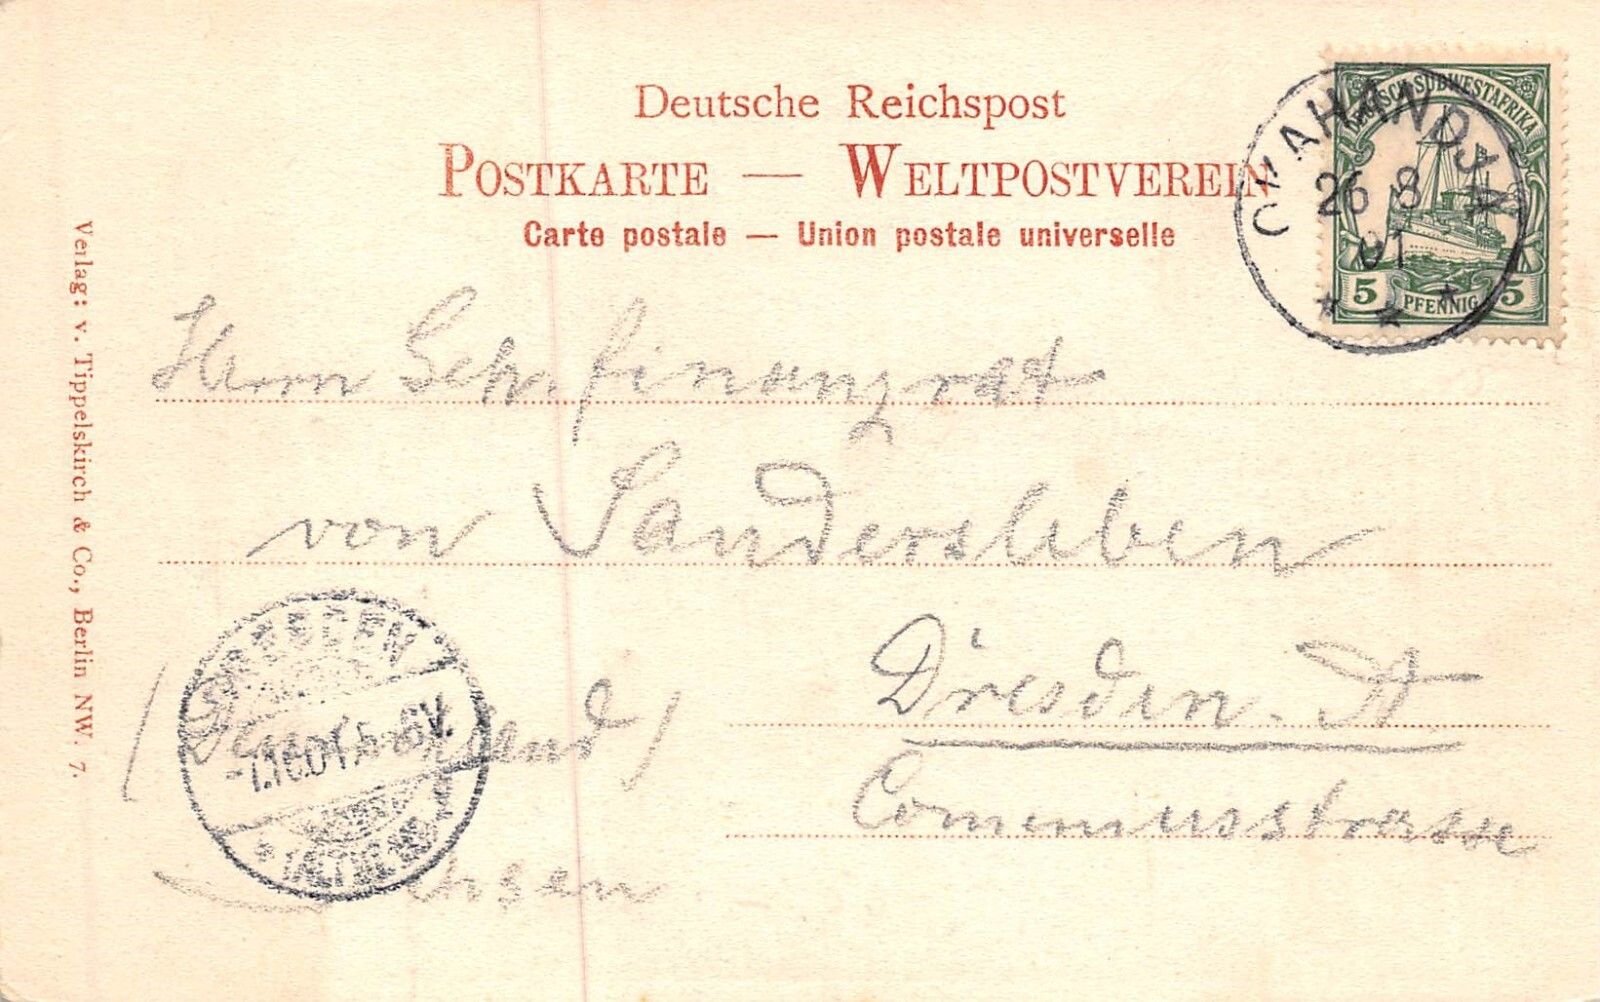 Deutsche Reichspost
POSTKARTE — WELTPOSTVEREIN
Carte postale — Union postale universelle
DEUTSCH-SÜDWESTAFRIKA
5 PFENNIG 5
OKAHANDJA
26 8
01
Herrn Geh. Finanzrat
von Sandersleben
Dresden. A
Comeniusstrasse
DRESDEN
ALTST.
Verlag: v. Tippelskirch & Co., Berlin NW. 7.